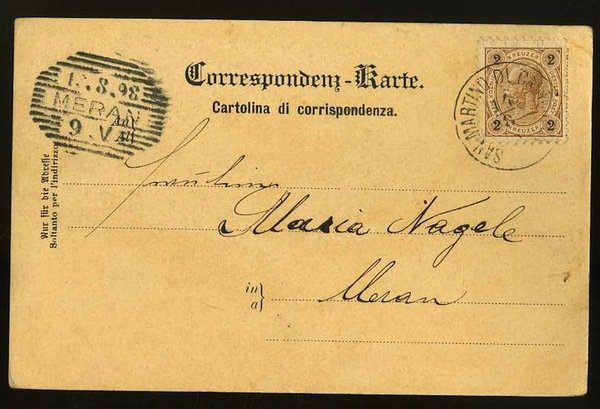 Correspondenz-Karte.
Cartolina di corrispondenza.
2 KREUZER 2
2 2
SAN MARTINO DI
8.98
MERAN
9.V
Nur für die Adresse
Soltanto per l'indirizzo
Fräulein
Maria Nagele
in
a}
Meran